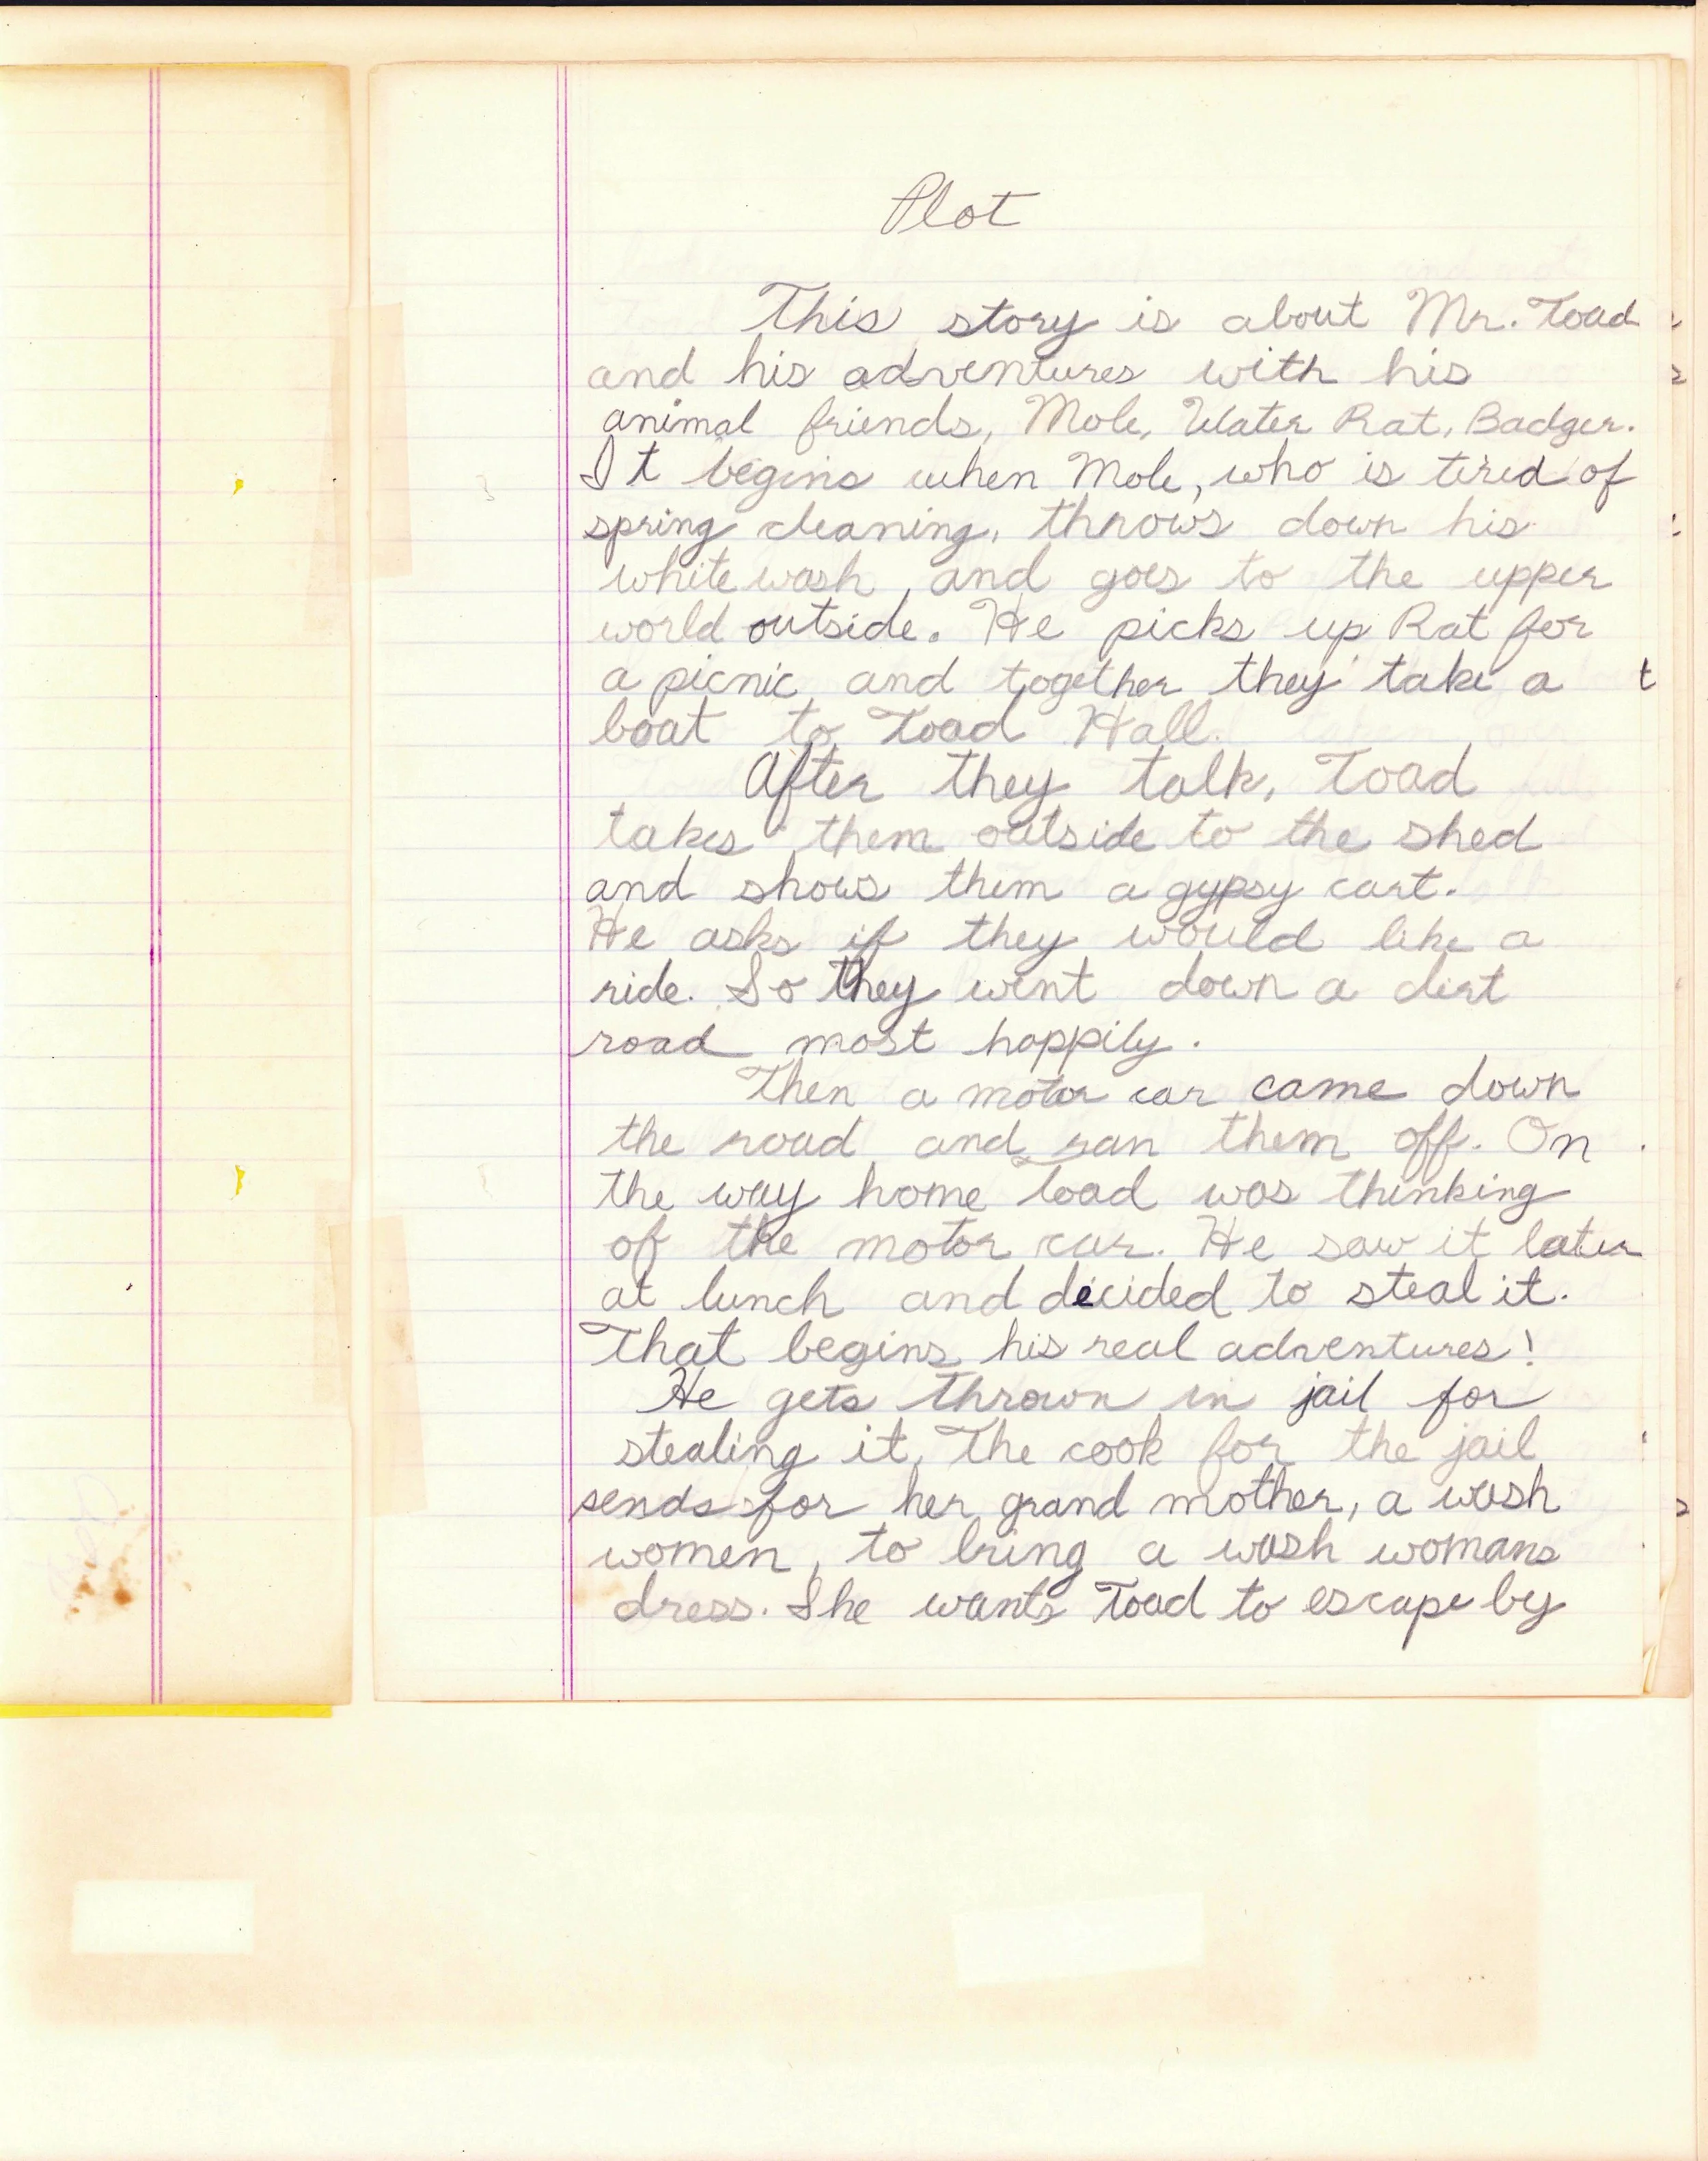 Plot
This story is about Mr. Toad
and his adventures with his
animal friends, Mole, Water Rat, Badger.
It begins when Mole, who is tired of
spring cleaning, throws down his
white wash, and goes to the upper
world outside. He picks up Rat for
a picnic, and together they take a
boat to Toad Hall.
After they talk, Toad
takes them outside to the shed
and shows them a gypsy cart.
He asks if they would like a
ride. So they went down a dirt
road most happily.
Then a motor car came down
the road and ran them off. On
the way home Toad was thinking
of the motor car. He saw it later
at lunch and decided to steal it.
That begins his real adventures!
He gets thrown in jail for
stealing it. The cook for the jail
sends for her grand mother, a wash
women, to bring a wash womans
dress. She wants Toad to escape by